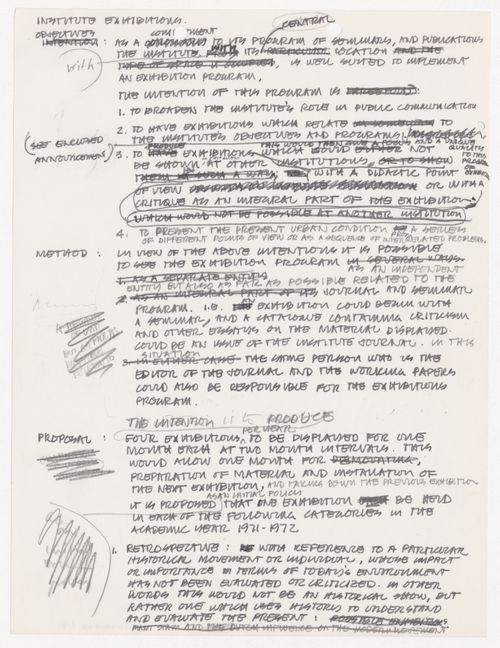 INSTITUTE EXHIBITIONS.
OBJECTIVES
INTENTION : AS A COMPLIMENT TO ITS PROGRAM OF SEMINARS, AND PUBLICATIONS
THE INSTITUTE, WITH ITS CENTRAL LOCATION AND THE
with
TYPE OF SPACE IT OCCUPIES, IS WELL SUITED TO IMPLEMENT
AN EXHIBITION PROGRAM.
THE INTENTION OF THIS PROGRAM IS
1. TO BROADEN THE INSTITUTE'S ROLE IN PUBLIC COMMUNICATION
2. TO HAVE EXHIBITIONS WHICH RELATE TO
THE INSTITUTE'S OBJECTIVES AND PROGRAMS.
(SEE ENCLOSED
ANNOUNCEMENT)
PRODUCE THIS WOULD THEN GIVE A FOCUS AND A UNIQUE
QUALITY
TO THIS
3. TO HAVE EXHIBITIONS WHICH WOULD EITHER NOT
BE SHOWN AT OTHER INSTITUTIONS, OR TO SHOW
THEM IN SUCH A WAY, WITH A DIDACTIC POINT
OF VIEW OR WITH A
CRITIQUE AS AN INTEGRAL PART OF THE EXHIBITION
WHICH WOULD NOT BE POSSIBLE AT ANOTHER INSTITUTION
4. TO PRESENT THE PRESENT URBAN CONDITION AS A SERIES
OF DIFFERENT POINTS OF VIEW OR AS A SEQUENCE OF INTERRELATED PROBLEMS.
METHOD : IN VIEW OF THE ABOVE INTENTIONS IT IS POSSIBLE
TO SEE THE EXHIBITION PROGRAM IN SEVERAL WAYS.
AS AN INDEPENDENT
1. AS A SEPARATE ENTITY
ENTITY BUT ALSO AS FAR AS POSSIBLE RELATED TO THE
2. AS AN INTEGRAL PART OF ITS JOURNAL AND SEMINAR
PROGRAM. I.E. EXHIBITION COULD BEGIN WITH
A SEMINAR, AND A CATALOGUE CONTAINING CRITICISM
AND OTHER ESSAYS ON THE MATERIAL DISPLAYED.
COULD BE AN ISSUE OF THE INSTITUTE JOURNAL. IN THIS
SITUATION
3. IN EITHER CASE THE SAME PERSON WHO IS THE
EDITOR OF THE JOURNAL AND THE WORKING PAPERS
COULD ALSO BE RESPONSIBLE FOR THE EXHIBITIONS
PROGRAM.
THE INTENTION IS TO PRODUCE
PER YEAR
PROPOSAL : FOUR EXHIBITIONS, TO BE DISPLAYED FOR ONE
MONTH EACH AT TWO MONTH INTERVALS. THIS
WOULD ALLOW ONE MONTH FOR
PREPARATION OF MATERIAL AND INSTALLATION OF
THE NEXT EXHIBITION, AND TAKING DOWN THE PREVIOUS EXHIBITION
AS AN INITIAL POLICY
IT IS PROPOSED THAT ONE EXHIBITION BE HELD
IN EACH OF THE FOLLOWING CATEGORIES IN THE
ACADEMIC YEAR 1971-1972
1. RETROSPECTIVE : WITH REFERENCE TO A PARTICULAR
HISTORICAL MOVEMENT OR INDIVIDUAL, WHOSE IMPACT
OR IMPORTANCE IN TERMS OF TODAY'S ENVIRONMENT
HAS NOT BEEN EVALUATED OR CRITICIZED. IN OTHER
WORDS THIS WOULD NOT BE AN HISTORICAL SHOW, BUT
RATHER ONE WHICH USES HISTORY TO UNDERSTAND
AND EVALUATE THE PRESENT : POSSIBLE EXHIBITIONS
MART STAM AND THE DUTCH INFLUENCE ON THE MODERN MOVEMENT